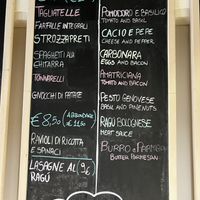 TAGLIATELLE
FARFALLE INTEGRALI
STROZZAPRETI
SPAGHETTI ALLA
CHITARRA
TONNARELLI
GNOCCHI DI PATATE
€ 8,50
ABBONDANTE
€ 11,50
RAVIOLI DI RICOTTA
E SPINACI
LASAGNE AL
RAGÙ
9€
POMODORO E BASILICO
TOMATO AND BASIL
CACIO E PEPE
CHEESE AND PEPPER
CARBONARA
EGGS AND BACON
AMATRICIANA
TOMATO AND BACON
PESTO GENOVESE
BASIL AND PINENUTS
RAGÙ BOLOGNESE
MEAT SAUCE
BURRO E PARMIGIANO
BUTTER PARMESAN